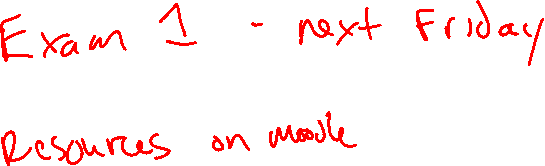 Exam 1 - next Friday
Resources on moodle